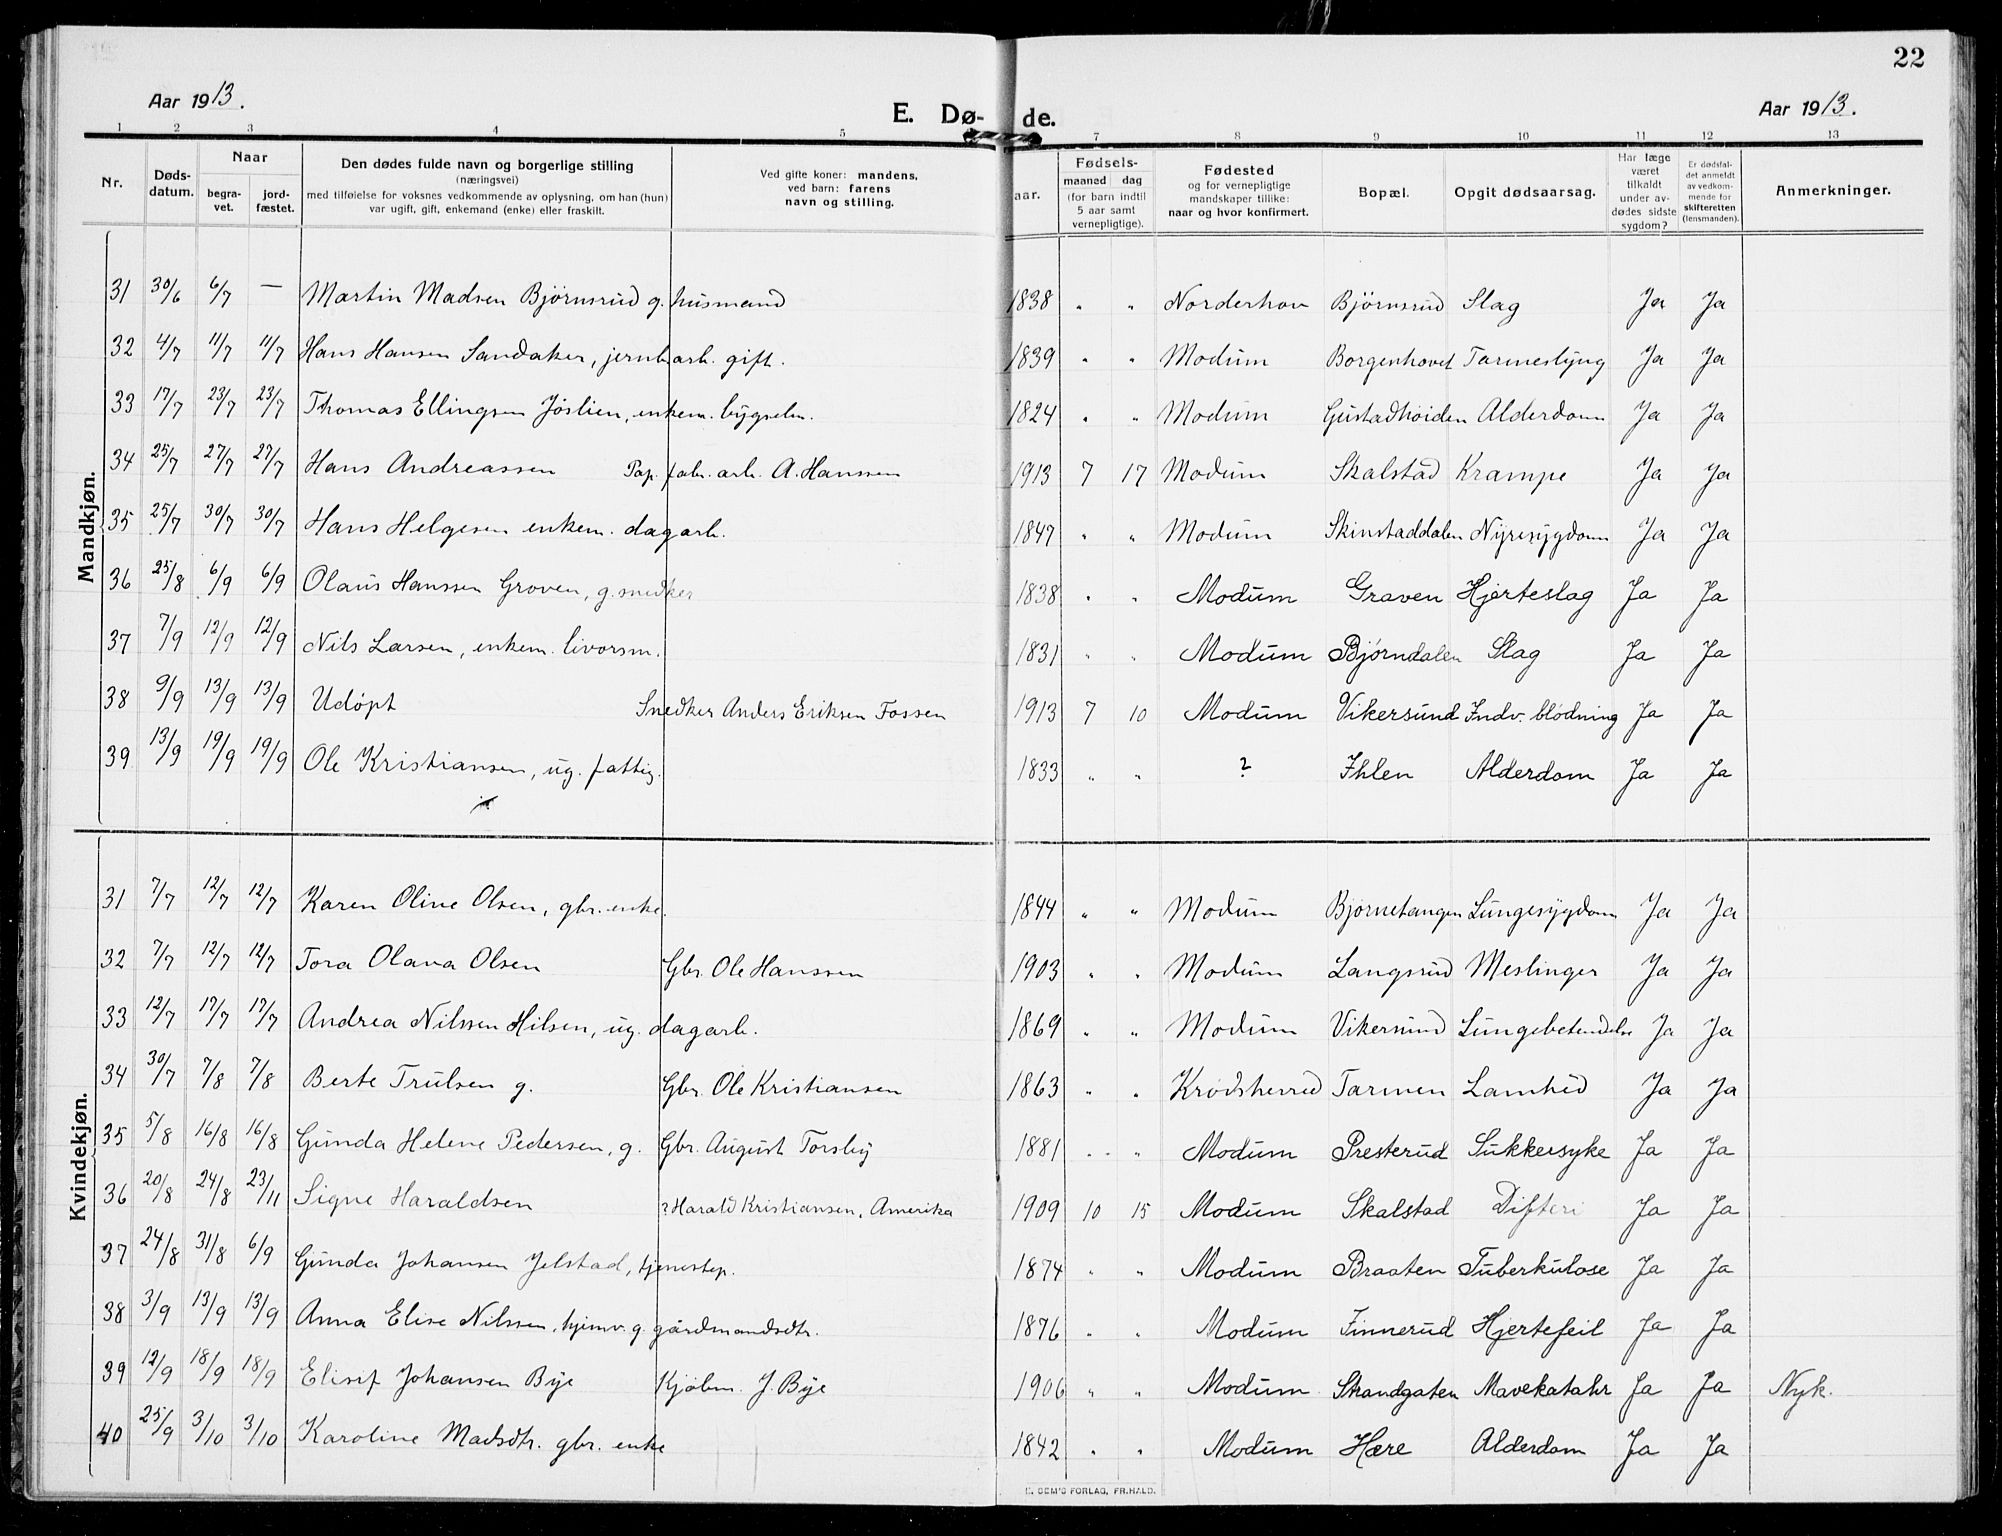 22
Aar 1913.
E. Dø-
de.
Aar 1913.
1 2 3 4 5 7 8 9 10 11 12 13
Nr.
Døds-
datum.
Naar
begra-
vet.
jord-
fæstet.
Den dødes fulde navn og borgerlige stilling
(næringsvei)
med tilføielse for voksnes vedkommende av oplysning, om han (hun)
var ugift, gift, enkemand (enke) eller fraskilt.
Ved gifte koner: mandens,
ved barn: farens
navn og stilling.
aar.
Fødsels-
maaned dag
(for barn indtil
5 aar samt
vernepligtige).
Fødested
og for vernepligtige
mandskaper tillike:
naar og hvor konfirmert.
Bopæl.
Opgit dødsaarsag.
Har læge
været
tilkaldt
under av-
dødes sidste
sygdom?
Er dødsfal-
det anmeldt
av vedkom-
mende for
skifteretten
(lensmanden).
Anmerkninger.
Mandkjøn.
31 30/6 6/7 — Martin Madsen Bjørnsrud g. husmand 1838 " " Norderhov Bjørnsrud Slag Ja Ja
32 4/7 11/7 11/7 Hans Hansen Sandaker, jernb.arb. gift. 1839 " " Modum Borgenhovet Tarmeslyng Ja Ja
33 17/7 23/7 23/7 Thomas Ellingsen Jøslien, enkem. bygselm. 1824 " " Modum Gustadhøiden Alderdom Ja Ja
34 25/7 27/7 27/7 Hans Andreassen Pap. fabr. arb. A. Hanssen 1913 7 17 Modum Skalstad Krampe Ja Ja
35 25/7 30/7 30/7 Hans Helgesen enkem. dagarb. 1847 " " Modum Skinstaddalen Nyresygdom Ja Ja
36 25/8 6/9 6/9 Olaus Hanssen Groven, g. snedker 1838 " " Modum Graven Hjerteslag Ja Ja
37 7/9 12/9 12/9 Nils Larsen, enkem. livørsm. 1831 " " Modum Bjørndalen Slag Ja Ja
38 9/9 13/9 13/9 Udøpt Snedker Anders Eriksen Fossen 1913 7 10 Modum Vikersund Indv. blødning Ja Ja
39 13/9 19/9 19/9 Ole Kristiansen, ug. fattig. 1833 " " ? Ihlen Alderdom Ja Ja
Kvindekjøn.
31 7/7 12/7 12/7 Karen Oline Olsen, gbr. enke. 1844 " " Modum Bjørnetangen Lungesygdom Ja Ja
32 7/7 12/7 12/7 Tora Olava Olsen Gbr. Ole Hanssen 1903 " " Modum Langsrud Meslinger Ja Ja
33 12/7 17/7 17/7 Andrea Nilssen Hilsen, ug. dagarb. 1869 " " Modum Vikersund Lungebetændelse Ja Ja
34 30/7 7/8 7/8 Berte Trulsen g. Gbr. Ole Kristiansen 1863 " " Krødsherred Tarmen Lamhed Ja Ja
35 5/8 16/8 16/8 Gunda Helene Pedersen, g. Gbr. August Torsby 1881 " " Modum Presterud Sukkersyke Ja Ja
36 20/8 24/8 23/11 Signe Haraldsen ? Harald Kristiansen, Amerika 1909 10 15 Modum Skalstad Difteri Ja Ja
37 24/8 31/8 6/9 Gunda Johansen Jelstad, tjenestep. 1874 " " Modum Braaten Tuberkulose Ja Ja
38 3/9 13/9 13/9 Anna Elise Nilssen, hjemv. g. gårdmandsdtr. 1876 " " Modum Finnerud Hjertefeil Ja Ja
39 12/9 18/9 18/9 Elisif Johansen Bye Kjøbm. J. Bye 1906 " " Modum Strandgaten Mavekatahr Ja Ja Nyk.
40 25/9 3/10 3/10 Karoline Madsdtr. gbr. enke 1842 " " Modum Hære Alderdom Ja Ja
SEM'S FORLAG, FR.HALD.